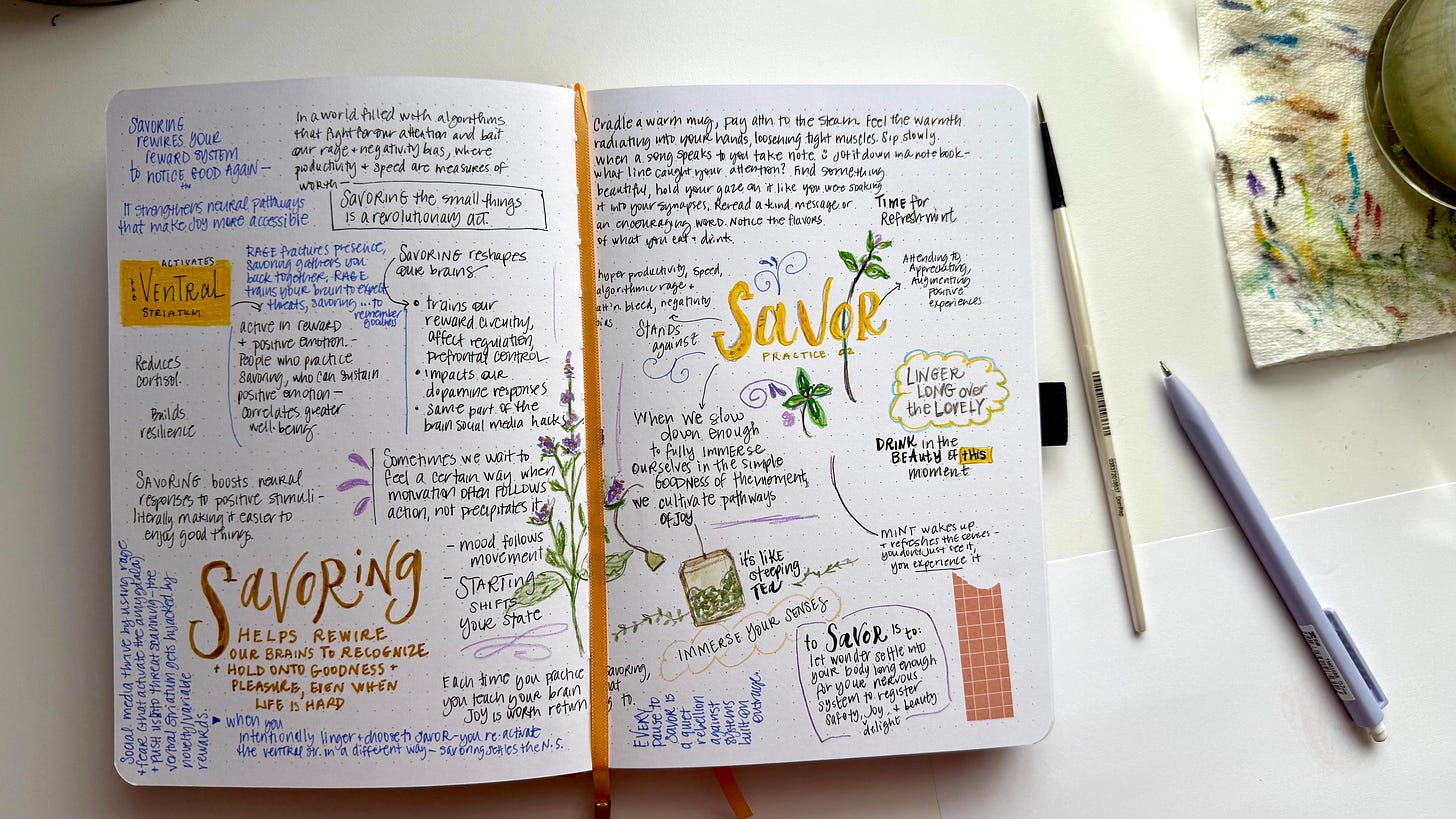 SAVORING
REWIRES YOUR
REWARD SYSTEM
to NOTICE the GOOD AGAIN —
IT strengthens neural pathways
that make Joy more accessible
In a world filled with algorithms
that fight for our attention and bait
our rage + negativity bias, where
productivity + speed are measures of
worth —
SAVORING the small things
is a revolutionary act.
ACTIVATES
the VENTRAL
STRIATUM
RAGE fractures presence,
savoring gathers you
back together, RAGE
trains your brain to expect
threats, savoring ... to
remember
goodness
SAVORING reshapes
our brains
active in reward
+ positive emotion. -
People who practice
savoring, who can sustain
positive emotion -
correlates greater
well-being
• trains our
reward circuitry,
affect regulation,
prefrontal control
• impacts our
dopamine responses
• same part of the
brain social media hacks
Reduces
cortisol.
Builds
resilience
SAVORING boosts neural
responses to positive stimuli -
literally making it easier to
enjoy good things.
Sometimes we wait to
feel a certain way when
motivation often FOLLOWS
action, not precipitates it
- mood follows
movement
- STARTING
SHIFTS
your state
SAVORING
HELPS REWIRE
OUR BRAINS TO RECOGNIZE
+ HOLD ONTO GOODNESS +
PLEASURE, EVEN WHEN
LIFE IS HARD
Each time you practice
you teach your brain
JOY is worth return
Social media thrive by using rage
+ fear that activate the amygdala
+ push us into threat scanning - the
ventral striatum gets hijacked by
novelty/variable
rewards.
when you
intentionally linger + choose to savor - you re-activate
the ventral str. in a different way - savoring settles the N.S.
Cradle a warm mug, pay attn to the steam. Feel the warmth
radiating into your hands, loosening tight muscles. Sip slowly.
when a song speaks to you take note. Jot it down in a notebook -
what line caught your attention? Find something
beautiful, hold your gaze on it like you were soaking
it into your synapses. Reread a kind message or
an encouraging word. Notice the flavors
of what you eat + drink.
Time for
Refreshmint
hyper productivity, speed,
algorithmic rage +
att'n bleed, negativity
bias
Stands
against
SAVOR
PRACTICE 02
Attending to
Appreciating,
Augmenting
positive
experiences
LINGER
LONG over
the LOVELY
DRINK in the
BEAUTY of this
moment
When we slow
down enough
to fully immerse
ourselves in the simple
GOODNESS of the moment,
we cultivate pathways
of JOY
it's like
steeping
TEA
MINT wakes up
+ refreshes the senses -
you don't just see it,
you experience it
IMMERSE YOUR SENSES
to SAVOR is to:
let wonder settle into
your body long enough
for your nervous
system to register
safety, joy + beauty
delight
savoring,
EVERY
pause to
SAVOR is
a quiet
rebellion
against
systems
built on
outrage